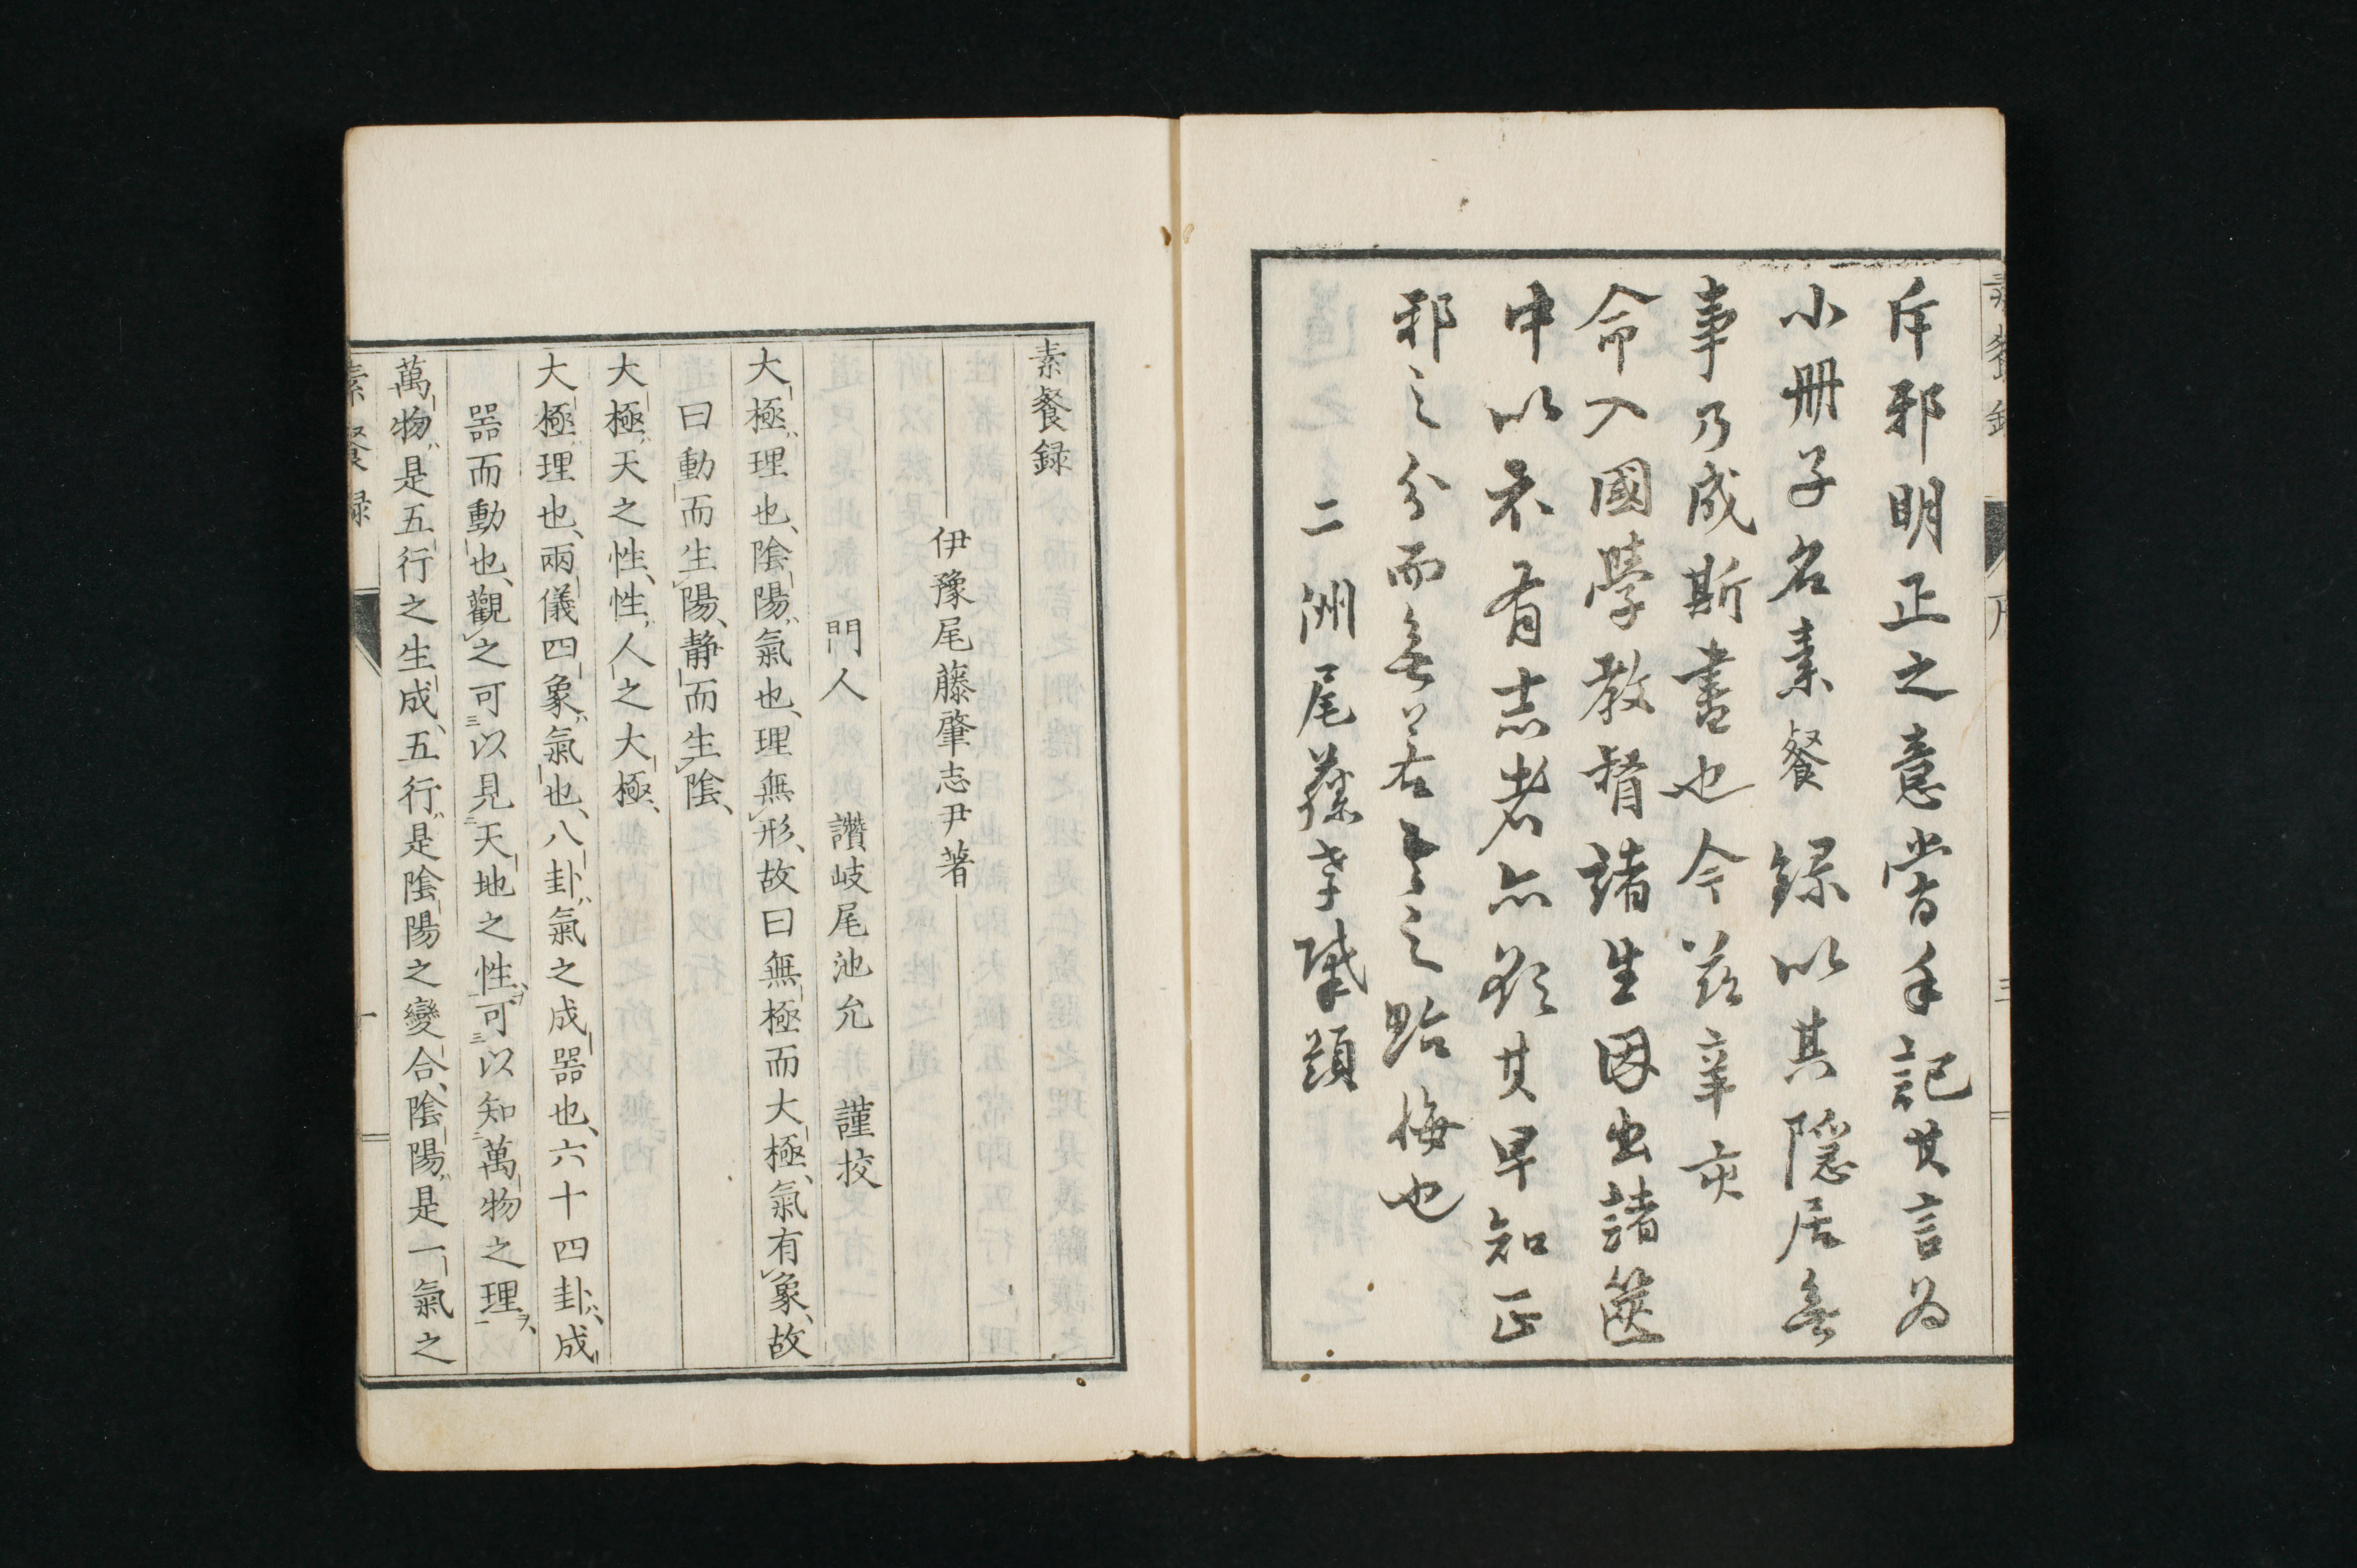 斥邪明正之意嘗手記其言為
小冊子名素餐録以其隱居無
事乃成斯書也今茲辛亥
命入國學教督諸生因出諸篋
中以示有志者亦欲其早知正
邪之分而無若之貽悔也
二洲尾藤孝肇題
素餐録
伊豫尾藤肇志尹著
門人 讚岐尾池允 謹挍
大極理也、陰陽氣也、理無形、故曰無極而大極、氣有象、故
曰動而生陽、靜而生陰、
大極天之性、性人之大極、
大極理也、兩儀四象氣也、八卦氣之成器也、六十四卦成
器而動也、觀之可以見天地之性、可以知萬物之理、
萬物是五行之生成、五行是陰陽之變合、陰陽是一氣之
素餐録 一